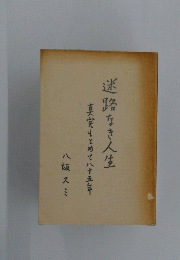 迷路なき人生
真実もとめて八十五年
八坂スミ